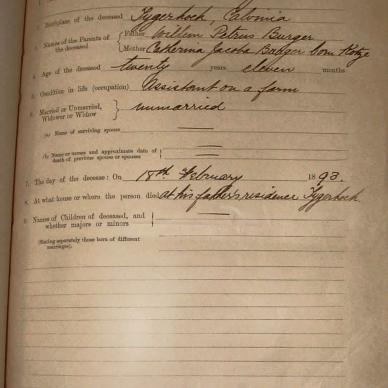 2. Birthplace of the deceased Tygerhoek, Calvinia
3. Names of the Parents of the deceased { Father Willem Petrus Burger
Mother Catherina Jacoba Burger born Kotze
4. Age of the deceased twenty years eleven months
5. Condition in life (occupation) Assistant on a farm
6. Married or Unmarried, Widower or Widow } unmarried
(a) Name of surviving spouse
(b) Name or names and approximate date of death of previous spouse or spouses
7. The day of the decease: On 18th February 1893.
8. At what house or where the person died at his father's residence Tygerhoek
9. Names of Children of deceased, and whether majors or minors
(Stating separately those born of different marriages).